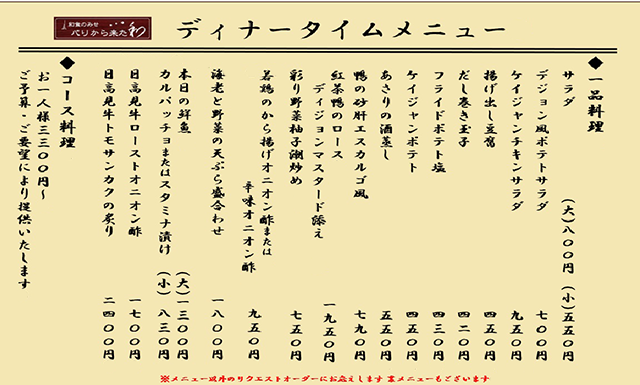 和食のみせ
パリから来た和
ディナータイムメニュー
◆一品料理
サラダ (大)八〇〇円 (小)五五〇円
デジョン風ポテトサラダ 七〇〇円
ケイジャンチキンサラダ 九五〇円
揚げ出し豆腐 四五〇円
だし巻き玉子 四二〇円
フライドポテト塩 四三〇円
ケイジャンポテト 四五〇円
あさりの酒蒸し 五五〇円
鴨の砂肝エスカルゴ風 七九〇円
紅茶鴨のロース
ディジョンマスタード添え 一九五〇円
彩り野菜柚子潮炒め 七五〇円
若鶏のから揚げオニオン酢または
辛味オニオン酢 九五〇円
海老と野菜の天ぷら盛合わせ 一八〇〇円
本日の鮮魚 (大)一三〇〇円
カルパッチョまたはスタミナ漬け (小)八三〇円
日高見牛ローストオニオン酢 一七〇〇円
日高見牛トモサンカクの炙り 二四〇〇円
◆コース料理
お一人様三三〇〇円~
ご予算・ご要望により提供いたします
※メニュー以外のリクエストオーダーにお応えします 裏メニューもございます